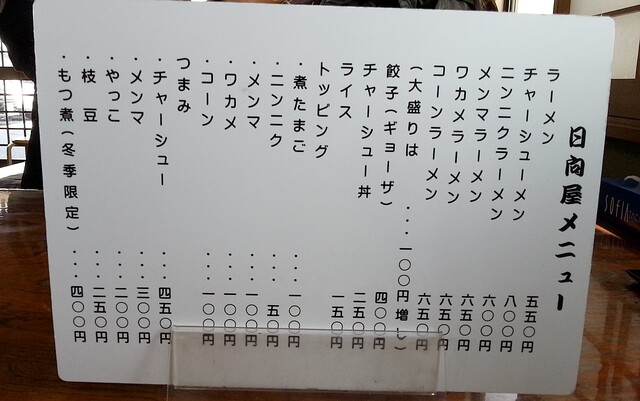 日向屋メニュー
ラーメン 五五〇円
チャーシューメン 八〇〇円
ニンニクラーメン 六〇〇円
メンマラーメン 六五〇円
ワカメラーメン 六五〇円
コーンラーメン 六五〇円
(大盛りは ・・・・一〇〇円増し)
餃子(ギョーザ) 四〇〇円
チャーシュー丼 二五〇円
ライス 一五〇円
トッピング
・煮たまご ・・・一〇〇円
・ニンニク ・・・五〇円
・メンマ ・・・・一〇〇円
・ワカメ ・・・・一〇〇円
・コーン ・・・・一〇〇円
つまみ
・チャーシュー ・・四五〇円
・メンマ ・・・・三〇〇円
・やっこ ・・・・二〇〇円
・枝 豆 ・・・・二五〇円
・もつ煮(冬季限定) ・・・・四〇〇円
SOFIA